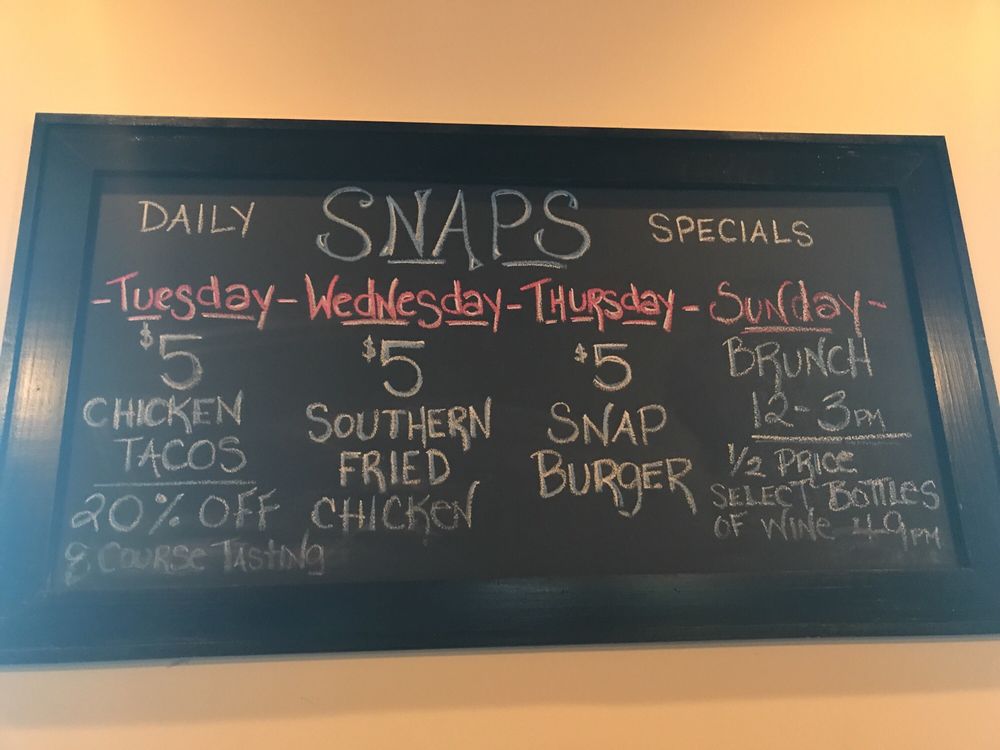 DAILY SNAPS SPECIALS
-Tuesday-Wednesday-Thursday-Sunday-
$5
CHICKEN
TACOS
20% OFF
8 COURSE TASTING
$5
SOUTHERN
FRIED
CHICKEN
$5
SNAP
BURGER
BRUNCH
12-3PM
1/2 PRICE
SELECT BOTTLES
OF WINE 4-9PM